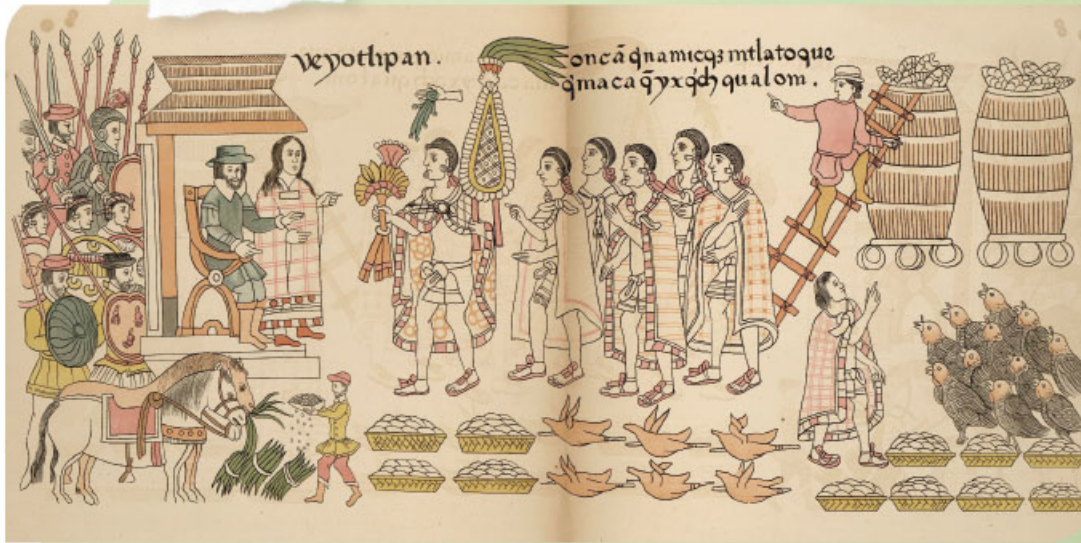 veyotlipan.
oncā q̄namicqȝ intlatoque
q̄macaq̄ yxq̄ch qualoni.